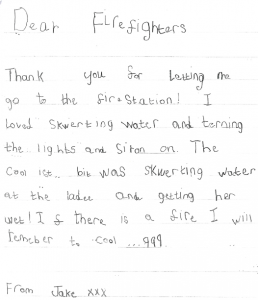 Dear Firefighters
Thank you for Letting me
go to the fire Station! I
loved Skwerting water and terning
the lights and Siron on. The
Cool ist.. bit was Skwerting water
at the ladee and getting her
wet! I f there is a fire I will
remember to cool ...999.
From Jake xxx